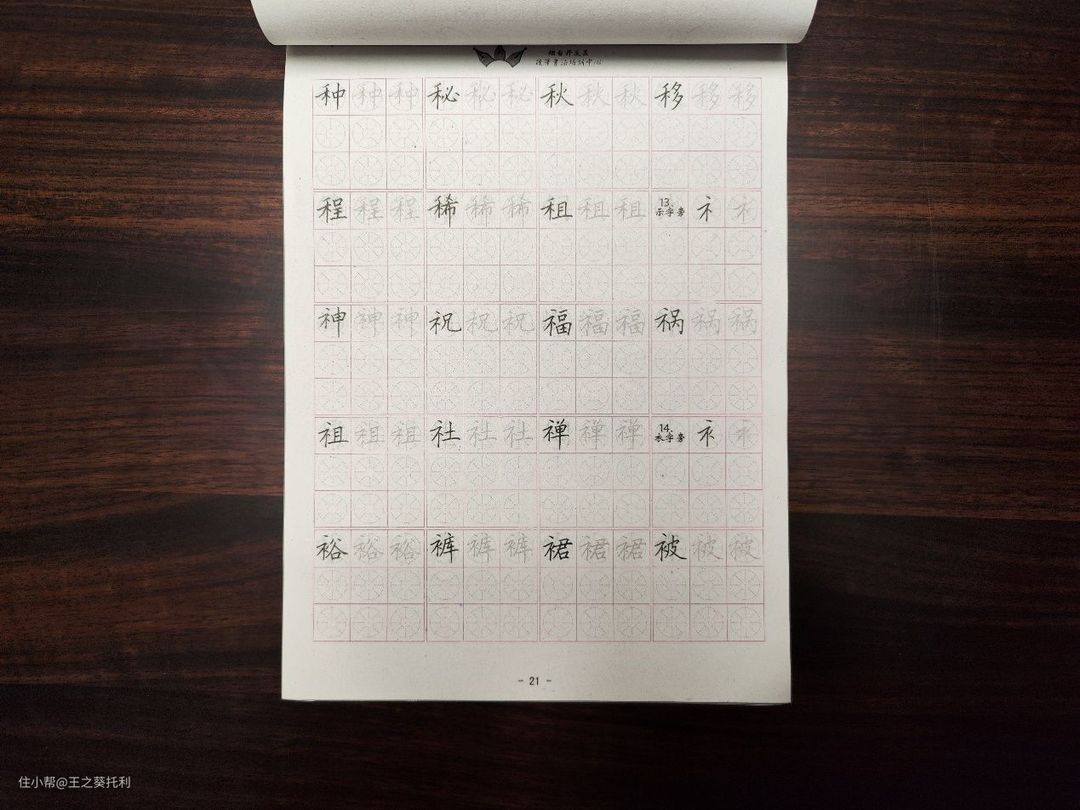 种种种秘秘秘秋秋秋移移移
程程程稀稀稀租租租13、示字旁礻礻
神神神祝祝祝福福福祸祸祸
祖祖祖社社社禅禅禅14、衣字旁衤衤
裕裕裕裤裤裤裙裙裙被被被
- 21 -
住小帮@王之葵托利